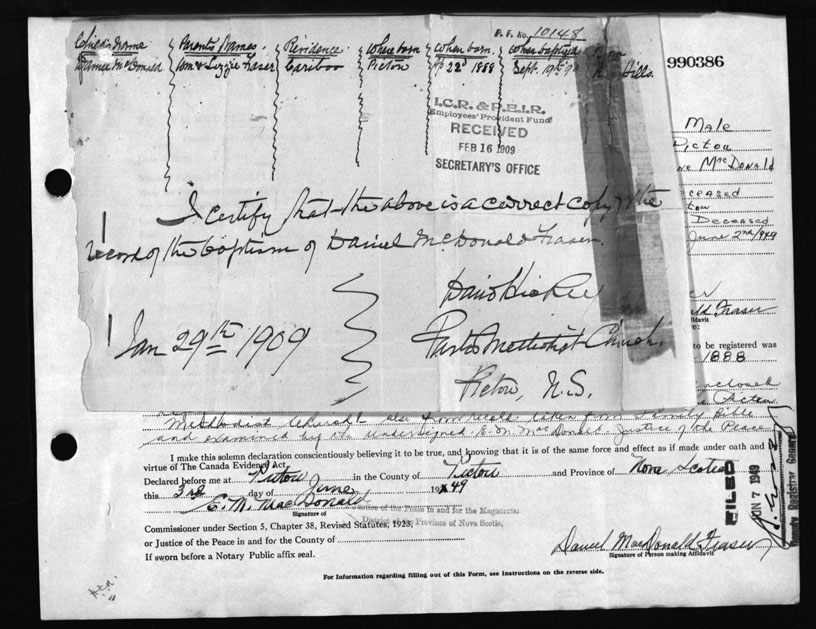 P. F. No. 10148
Child's Name Parents Names. Residence. Where born When born. When baptised
McDonald Wm & Lizzie Fraser Cariboo Pictou 22d 1888 Sept. 19th Hills.
990386
I.C.R. & P.E.I.R.
Employees' Provident Fund
RECEIVED
FEB 16 1909
SECRETARY'S OFFICE
I certify that the above is a correct copy of the
record of the baptism of Daniel McDonald Fraser.
David Hickey
Jan 29th 1909
Pastor Methodist Church.
Pictou, N.S.
Male
Pictou
McDonald
ceased
tou
Deceased
June 2nd/949
er
ald Fraser
ffidavit
re:
to be registered was
1888
enclosed
Methodist Church also from Family Bible
and examined by the undersigned E. M. McDonald Justice of the Peace
I make this solemn declaration conscientiously believing it to be true, and knowing that it is of the same force and effect as if made under oath and by
virtue of The Canada Evidence Act.
Declared before me at Pictou in the County of Pictou and Province of Nova Scotia
this 3rd day of June 1949
E. M. MacDonald
Signature of
of the Peace in and for the Magisterial
District Province of Nova Scotia,
Commissioner under Section 5, Chapter 38, Revised Statutes, 1923,
or Justice of the Peace in and for the County of
If sworn before a Notary Public affix seal.
FILED
JUN 7 1949
Deputy Registrar General
Daniel MacDonald Fraser
Signature of Person making Affidavit
For Information regarding filling out of this Form, see instructions on the reverse side.